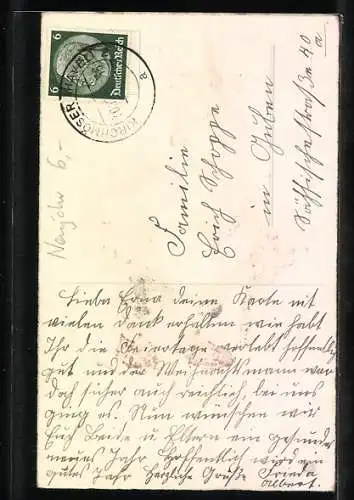 6 6
Deutsches Reich
KIRCHMÖSER
a
Neujahr 6,-
Familie
Erich Schippe
in Guben
Sächsischestraße 40
a
Liebe Erna deine Karte mit
vielen Dank erhalten wie habt
Ihr die Feiertage verlebt hoffentlich
gut und der Weihnachtsmann war
doch sicher auch reichlich, bei uns
ging es. Nun wünschen wir
Euch Beide u. Eltern ein gesundes
neues Jahr hoffentlich wird ein
gutes Jahr Herzliche Grüße Frieda
Albert.